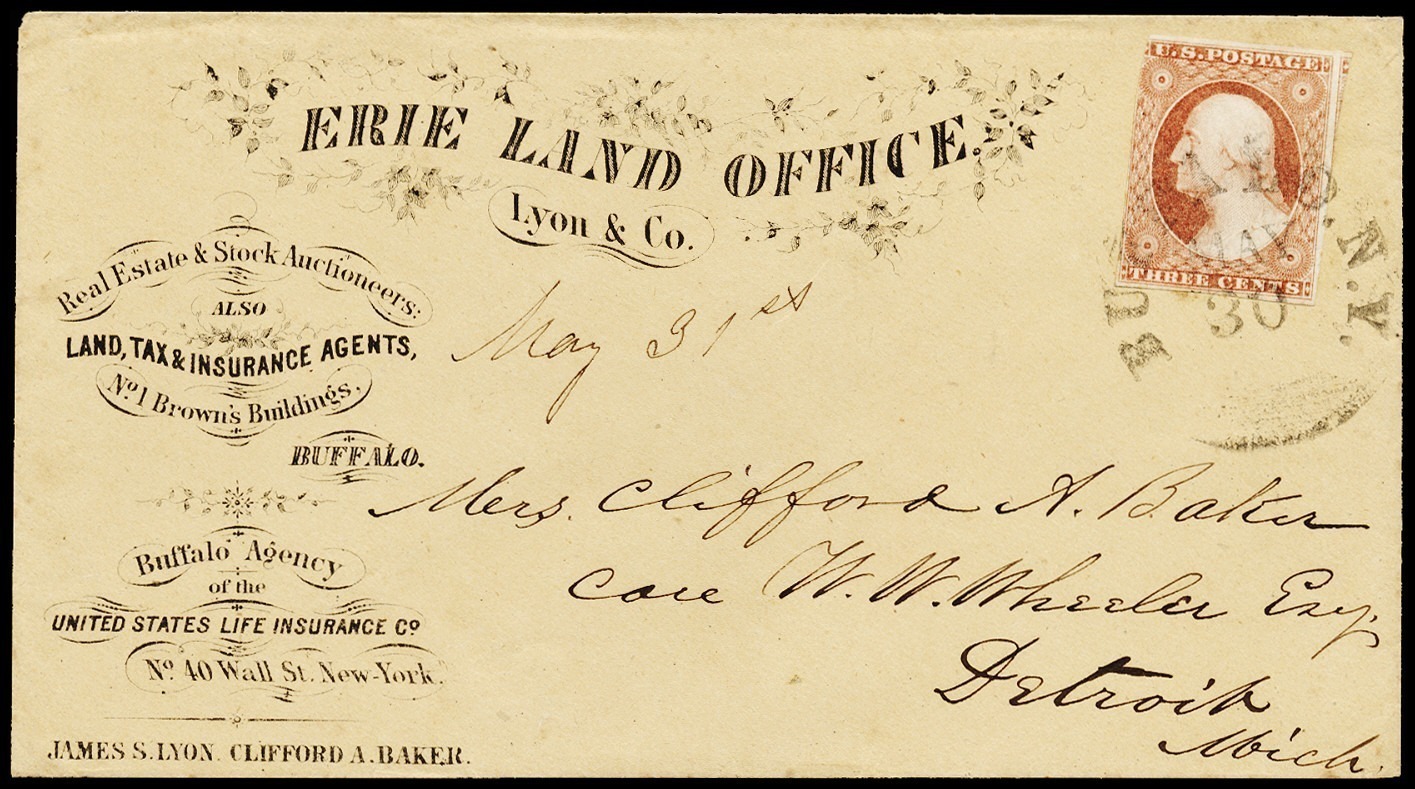 ERIE LAND OFFICE.
Lyon & Co.
Real Estate & Stock Auctioneers:
ALSO
LAND, TAX & INSURANCE AGENTS,
No. 1 Brown's Buildings,
BUFFALO.
Buffalo Agency
of the
UNITED STATES LIFE INSURANCE Co
No. 40 Wall St. New-York.
JAMES S. LYON. CLIFFORD A. BAKER.
U.S. POSTAGE
THREE CENTS
BU ALO. N.Y.
MAY
30
May 31st
Mrs. Clifford A. Baker
care W. W. Wheeler Esq.
Detroit
Mich.